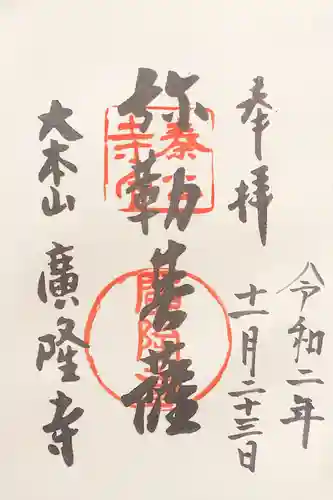 令和二年
十一月二十三日
奉拝
弥勒菩薩
大本山 廣隆寺